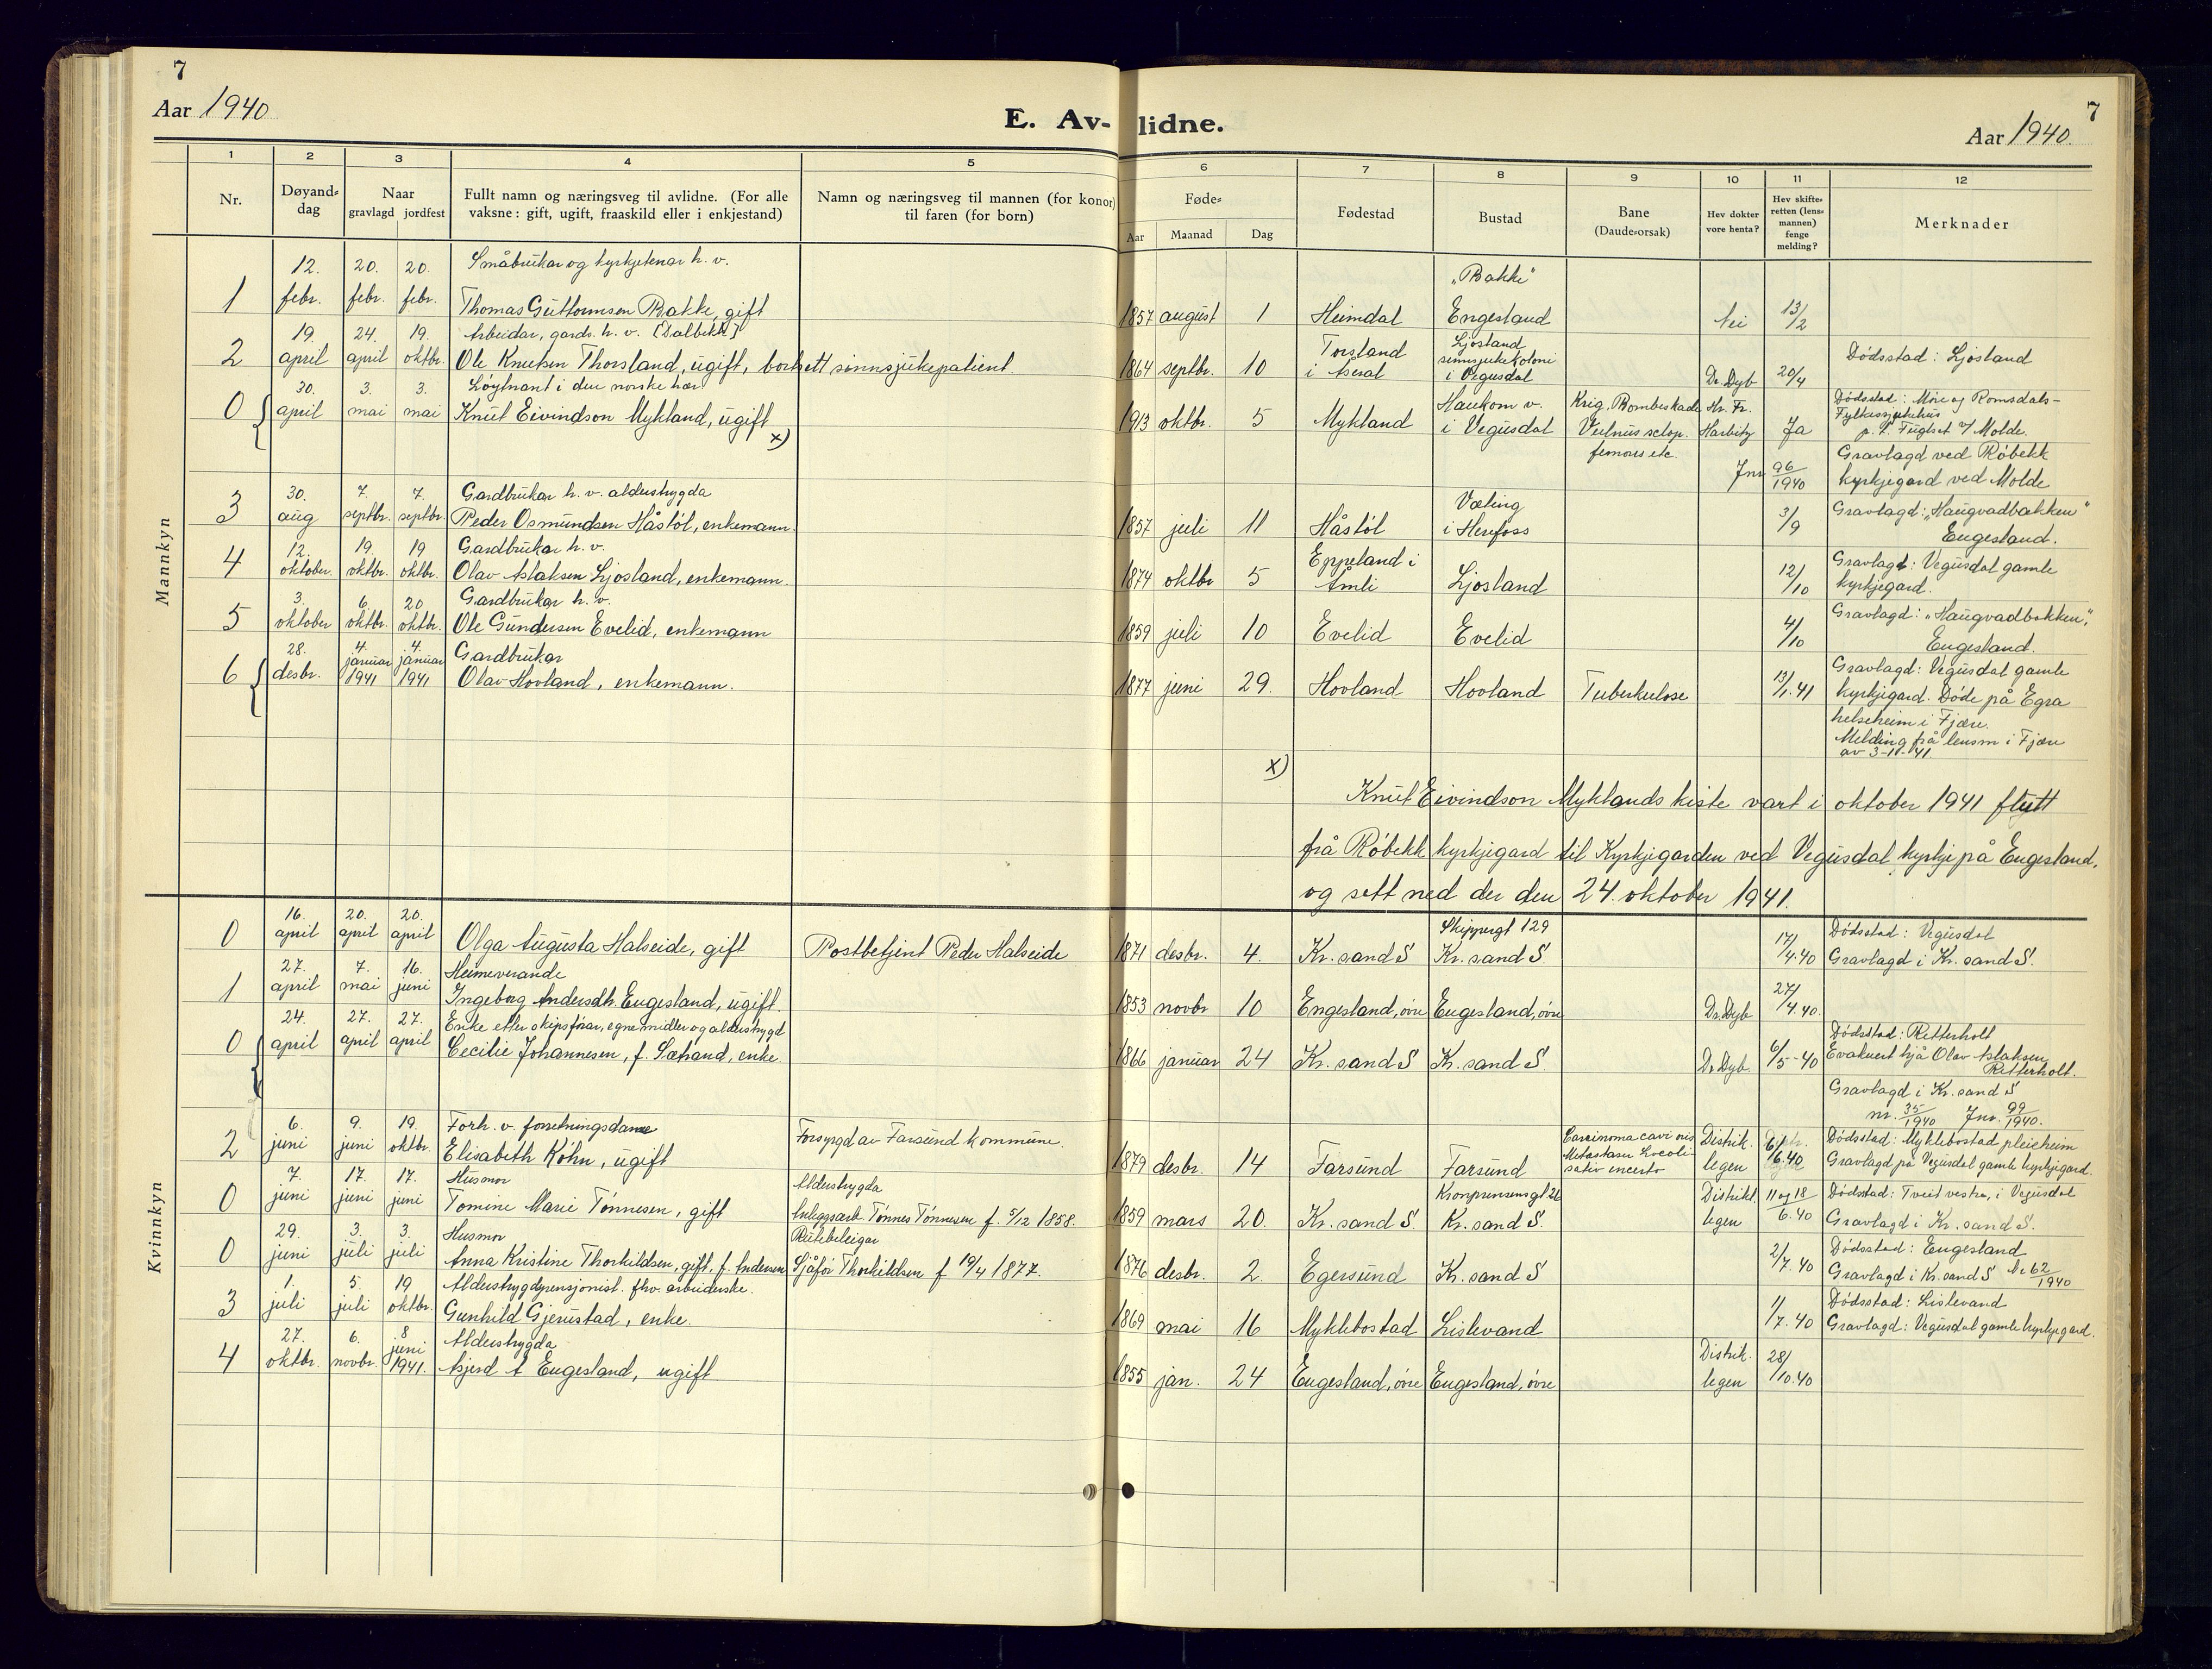 7
Aar 1940
E. Av-lidne.
7
Aar 1940.
1 2 3 4 5 6 7 8 9 10 11 12
Nr.
Døyand-dag
Naar
gravlagd jordfest
Fullt namn og næringsveg til avlidne. (For alle
vaksne: gift, ugift, fraaskild eller i enkjestand)
Namn og næringsveg til mannen (for konor)
til faren (for born)
Føde-
Aar Maanad Dag
Fødestad
Bustad
Bane
(Daude-orsak)
Hev dokter
vore henta?
Hev skifte-
retten (lens-
mannen)
fenge
melding?
Merknader
Mannkyn
12. 20. 20. Småbrukar og kyrkjetenar h. v. "Bakke"
1 febr. febr. febr. Thomas Guttormsen Bakke, gift 1857 august 1 Heimdal Engesland Nei 13/2
19. 24. 19. Arbeidar, gards. h. v. [Dalbekk] Torsland Ljosland
2 april april oktbr. Ole Knutsen Thorsland, ugift, bortsett sinnsjukepatient. 1864 septbr. 10 i Åseral sinnsjukekoloni i Vegusdal Dr. Dyb 20/4 Dødsstad: Ljosland
30. 3. 3. Løytnant i den norske hær.
0 april mai mai Knut Eivindson Mykland, ugift x) 1913 oktbr. 5 Mykland Haukom v. i Vegusdal
Krig. Bombeskade
Vulnus sclop.
femoris etc.
Kr. Fr.
Harbitz
Ja
Jnr 96/1940
Dødsstad: Møre og Romsdals-
Fylkessjukehus
p. t. Fuglset v/ Molde.
Gravlagd ved Røbekk
kyrkjegard ved Molde
30. 7. 7. Gardbrukar h. v. alderstrygda Væting
3 aug septbr. septbr. Peder Osmundsen Håstøl, enkemann. 1857 juli 11 Håstøl i Herefoss 3/9 Gravlagd: "Haugvadbakken"
Engesland.
12. 19. 19 Gardbrukar h. v. Eppeland i
4 oktober. oktbr. oktbr. Olav Aslaksen Ljosland, enkemann. 1874 oktbr 5 Åmli Ljosland 12/10 Gravlagt: Vegusdal gamle
kyrkjegard.
3. 6. 20 Gardbrukar h. v.
5 oktober oktbr. oktbr. Ole Gundersen Evelid, enkemann 1859 juli 10 Evelid Evelid 4/10 Gravlagd: "Haugvadbakken",
Engesland.
28. 4. 4. Gardbrukar
6 desbr. januar 1941 januar 1941 Olav Hovland, enkemann. 1877 juni 29. Hovland Hovland Tuberkulose 13/1.41 Gravlagd: Vegusdal gamle
kyrkjegard. Døde på Egra
helseheim i Fjære.
Melding frå lensm i Fjære
av 3-1-41.
x)
Knut Eivindson Myklands kiste vart i oktober 1941 flytt
frå Røbekk kyrkjegard til Kyrkjegarden ved Vegusdal kyrkje på Engesland,
og sett ned der den 24. oktober 1941.
Kvinnkyn
16. 20. 20. Skippergt 129
0 april april april Olga Augusta Halseide, gift Postbetjent Peder Halseide 1871 desbr. 4. Kr. sand S Kr. sand S. 17/4.40 Dødsstad: Vegusdal
Gravlagd i Kr. sand S.
27. 7. 16. Heimeverande
1 april mai juni Ingeborg Andersdtr. Engesland, ugift. 1853 novbr 10 Engesland, øvre Engesland, øvre Dr. Dyb 27/4.40.
24. 27. 27. Enke etter skipsførar, egne midler og alderstrygd
0 april april april Cecilie Johannesen, f. Sætrand, enke. 1866 januar 24 Kr. sand S Kr. sand S. Dr. Dyb. 6/5-40
Dødsstad: Retterholt
Evakuert hjå Olav Aslaksen
Retterholt.
Gravlagd i Kr. sand S
nr. 35/1940 Jnr. 99/1940.
6. 9. 19. Forh. v. forretningsdame
2 juni juni oktbr. Elisabeth Køhn, ugift Forsyrgd av Farsund kommune. 1879 desbr. 14 Farsund Farsund
Carcinoma cavi oris
Metastaser Locali-
satio incerto
Distrik.
legen
6.40
Dødsstad: Myklebostad pleieheim
Gravlagd på Vegusdal gamle kyrkjegard.
7. 17. 17. Husmor Alderstrygda Kronprinsensgt 26
0 juni juni juni Tomine Marie Tønnesen, gift Anleggsarb. Tønnes Tønnesen f. 5/12 1858. 1859 mars 20. Kr. sand S. Kr. sand S. Distrikt. legen 11 og 18/6.40 Dødsstad: Tveit vestre, i Vegusdal
Gravlagd i Kr. sand S.
29. 3. 3. Husmor Rutebileigar
0 juni juli juli Anna Kristine Thorkildsen, gift, f. Andersen Sjåfør Thorkildsen f 19/4 1877. 1876 desbr. 2. Egersund Kr. sand S 2/7.40 Dødsstad: Engesland
Gravlagd i Kr. sand S Nr 62/1940
1. 5. 19 Alderstrygdpensjonist. fhv. arbeiderske.
3 juli juli oktbr. Gunhild Gjerustad, enke. 1869 mai 16 Myklebostad Lislevand 1/7.40 Dødsstad: Lislevand
Gravlagd: Vegusdal gamle kyrkjegard.
27. 6. 8 Alderstrygda
4 oktbr. novbr. juni 1941. Asjerd A Engesland, ugift 1855 jan. 24 Engesland, øvre Engesland, øvre Distrik. legen 28/10.40